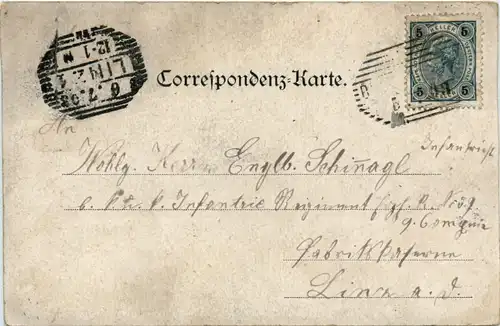 LINZ 1
6.7.98
12-1 N
5 5
5 5
Correspondenz-Karte.
An
Wohlg. Herrn Englb. Schinagl
Infanterist
k. Infantrie Regiment
9. Compnie
Fabrikskaserne
Linz a. d.